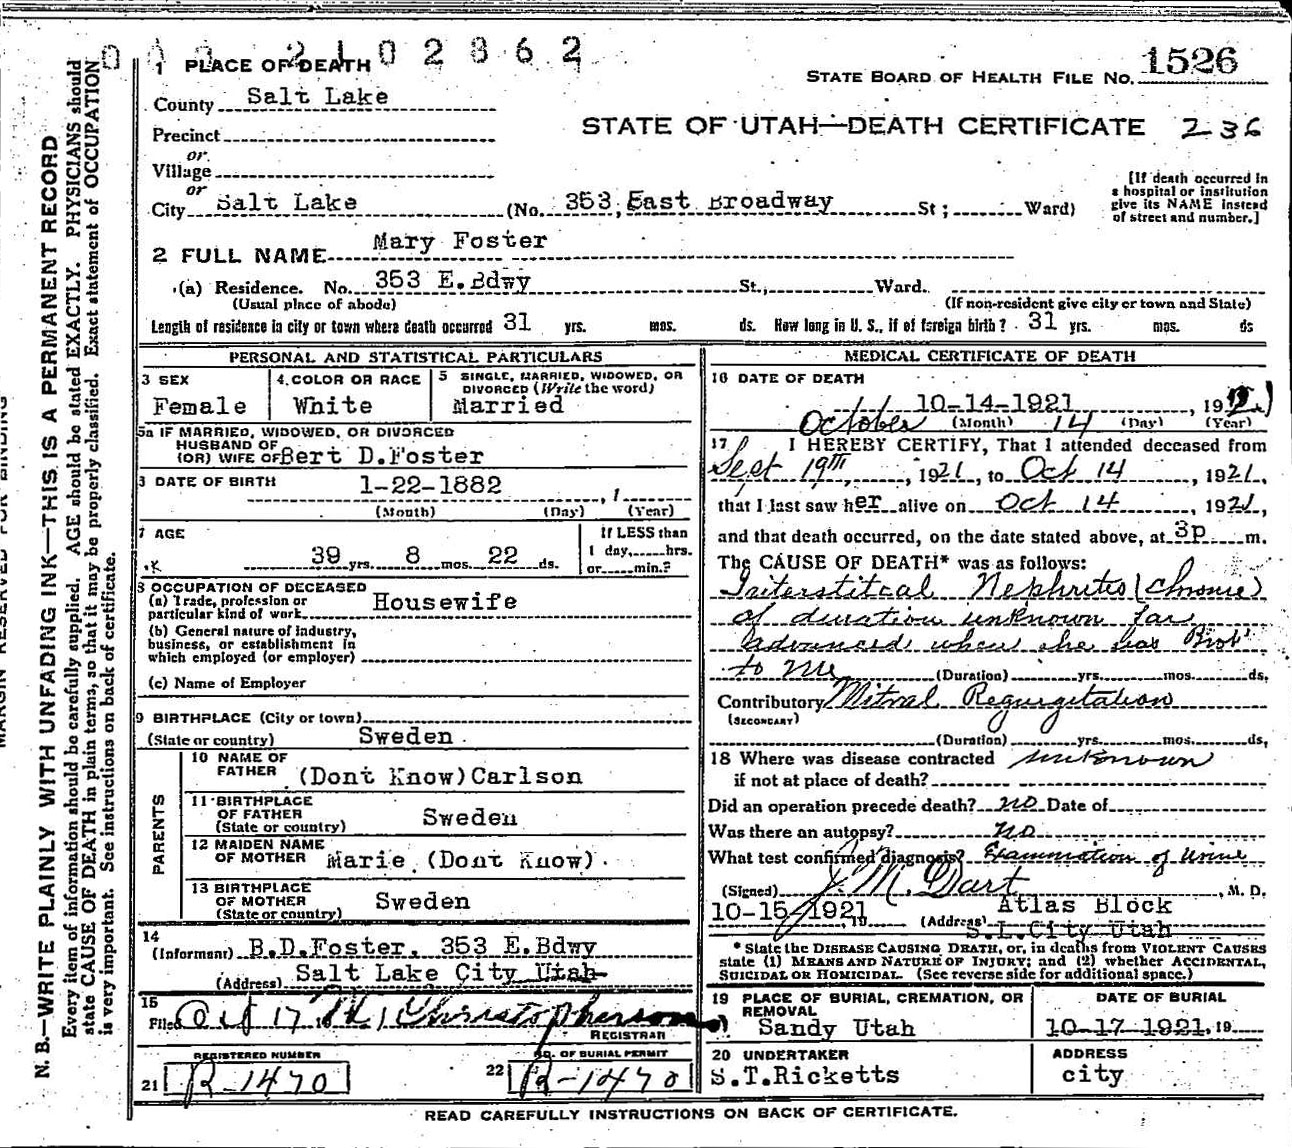 0 0 2 1 0 2 8 6 2
1 PLACE OF DEATH
STATE BOARD OF HEALTH FILE NO. 1526
County Salt Lake
STATE OF UTAH—DEATH CERTIFICATE 236
Precinct
or
Village
or
City Salt Lake (No. 353, East Broadway St; Ward)
[If death occurred in
a hospital or institution
give its NAME instead
of street and number.]
2 FULL NAME Mary Foster
(a) Residence. No. 353 E.Bdwy St., Ward.
(Usual place of abode) (If non-resident give city or town and State)
Length of residence in city or town where death occurred 31 yrs. mos. ds. How long in U. S., if of foreign birth? 31 yrs. mos. ds
PERSONAL AND STATISTICAL PARTICULARS
3 SEX
Female
4. COLOR OR RACE
White
5 SINGLE, MARRIED, WIDOWED, OR
DIVORCED (Write the word)
Married
5a IF MARRIED, WIDOWED, OR DIVORCED
HUSBAND OF
(OR) WIFE OF Bert D.Foster
DATE OF BIRTH 1-22-1882 , 1
(Month) (Day) (Year)
7 AGE
39 yrs. 8 mos. 22 ds.
If LESS than
1 day,......hrs.
or......min.?
8 OCCUPATION OF DECEASED
(a) Trade, profession or
particular kind of work Housewife
(b) General nature of industry,
business, or establishment in
which employed (or employer)
(c) Name of Employer
9 BIRTHPLACE (City or town)
(State or country) Sweden
PARENTS
10 NAME OF
FATHER (Dont Know) Carlson
11 BIRTHPLACE
OF FATHER
(State or country) Sweden
12 MAIDEN NAME
OF MOTHER Marie (Dont Know)
13 BIRTHPLACE
OF MOTHER
(State or country) Sweden
14
(Informant) B.D.Foster, 353 E.Bdwy
(Address) Salt Lake City Utah
15
Filed Oct 17 Christopherson
REGISTRAR
REGISTERED NUMBER
21 R-1470
NO. OF BURIAL PERMIT
22 R-1470
MEDICAL CERTIFICATE OF DEATH
16 DATE OF DEATH
10-14-1921 , 192
October (Month) 14 (Day) (Year)
17 I HEREBY CERTIFY, That I attended deceased from
Sept 19th, 1921, to Oct 14, 1921,
that I last saw her alive on Oct 14, 1921,
and that death occurred, on the date stated above, at 3p m.
The CAUSE OF DEATH* was as follows:
Interstitcal Nephrites (Chronic)
of duration unknown far
advanced when she was Brot
to me
(Duration) yrs. mos. ds.
Contributory Mitral Regurgitation
(SECONDARY)
(Duration) yrs. mos. ds.
18 Where was disease contracted unknown
if not at place of death?
Did an operation precede death? no Date of
Was there an autopsy? no
What test confirmed diagnosis? Examination of Urine
(Signed) J. M. Dart , M. D.
10-15-1921 19 (Address) Atlas Block
S.L.City Utah
* State the DISEASE CAUSING DEATH, or, in deaths from VIOLENT CAUSES
state (1) MEANS AND NATURE OF INJURY; and (2) whether ACCIDENTAL,
SUICIDAL OR HOMICIDAL. (See reverse side for additional space.)
19 PLACE OF BURIAL, CREMATION, OR
REMOVAL
Sandy Utah
DATE OF BURIAL
10-17-1921, 19
20 UNDERTAKER
S.T.Ricketts
ADDRESS
city
READ CAREFULLY INSTRUCTIONS ON BACK OF CERTIFICATE.
MARGIN RESERVED FOR BINDING
N. B.—WRITE PLAINLY WITH UNFADING INK—THIS IS A PERMANENT RECORD
Every item of information should be carefully supplied. AGE should be stated EXACTLY. PHYSICIANS should
state CAUSE OF DEATH in plain terms, so that it may be properly classified. Exact statement of OCCUPATION
is very important. See instructions on back of certificate.